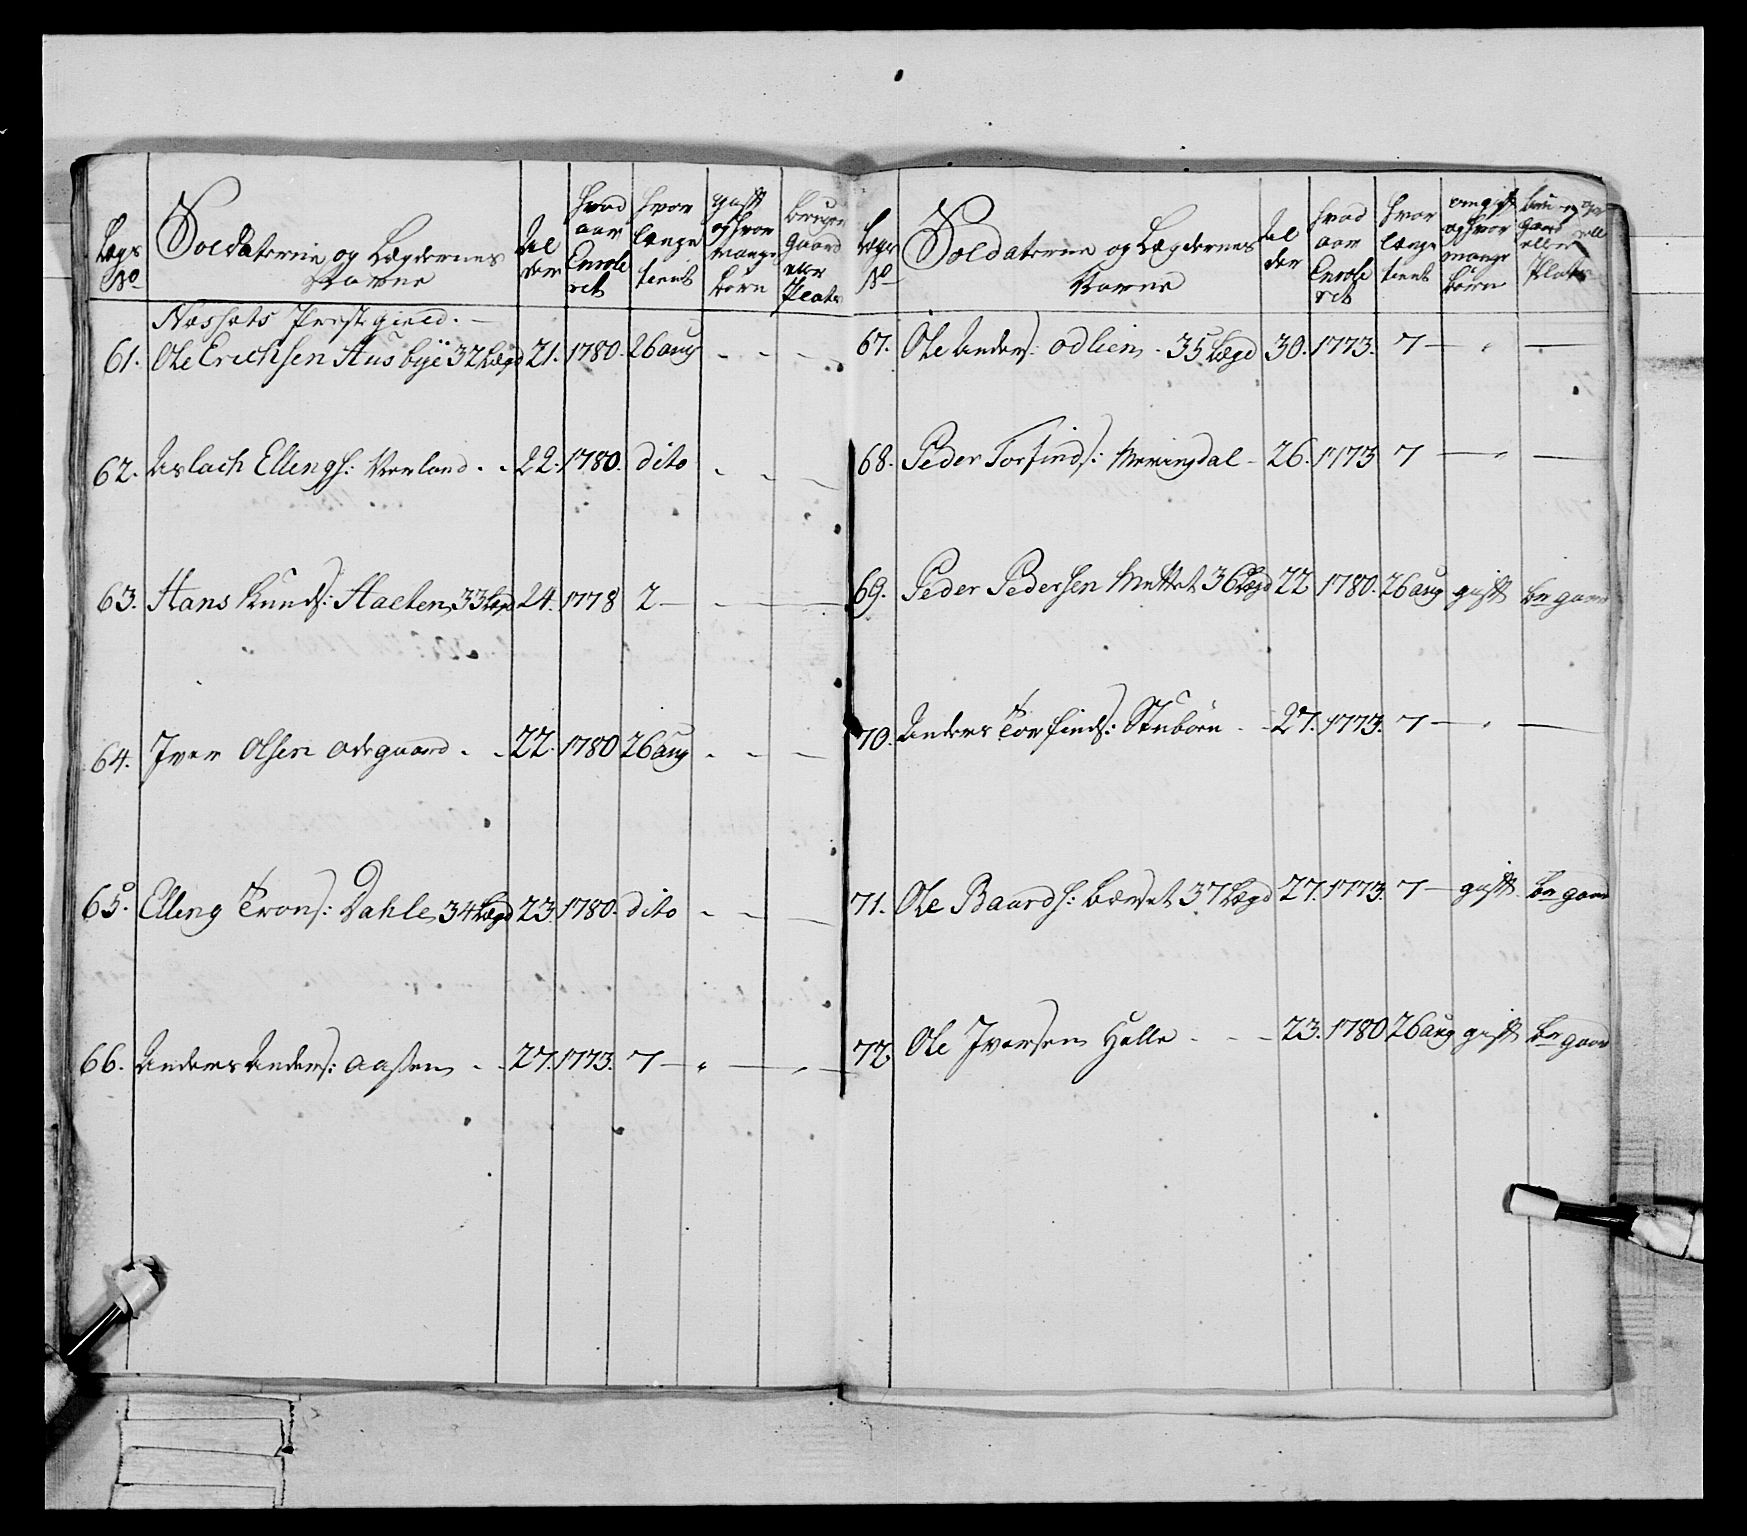 Lægs No
Soldaterne og Lægdernes Navne
Al der
hvad aar Enrole ret
hvor længe tient
gift og hvor mange børn
bruger gaard eller Plads
Næssets Præstegield.
61. Ole Erichsen Husbye 32 Lægd 21. 1780. 26 aug - - -
62. Aslach Ellings: Verland - - 22. 1780. dito - - -
63. Hans Knuds: Haelen 33 Lægd 24. 1778 2 — - —
64. Iver Olsen Odegaard - - 22. 1780 26 aug - - -
65. Elling Trons: Dahle 34 Lægd 23. 1780. dito - - -
66. Anders Anders: Aasen - - 27. 1773. 7 — " — " —
Lægs No
Soldaterne og Lægdernes Navne
Al der
hvad aar Enrole ret
hvor længe tient
om gift og hvor mange børn
gaard eller Plads
67. Ole Anders: Odlien - 35 Lægd 30. 1773. 7 — " —
68. Peder Torfinds: Meringdal - 26. 1773 7 — " —
69. Peder Pedersen Mettet 36 Lægd 22 1780. 26 aug gift br gaard
70. Anders Torfinds: Stubøen - - 27. 1773. 7 — " —
71. Ole Baards: Bærset 37 Lægd 27. 1773. 7 — gift br gaard
72. Ole Iversen Halle - - - 23. 1780 26 aug gift br gaard